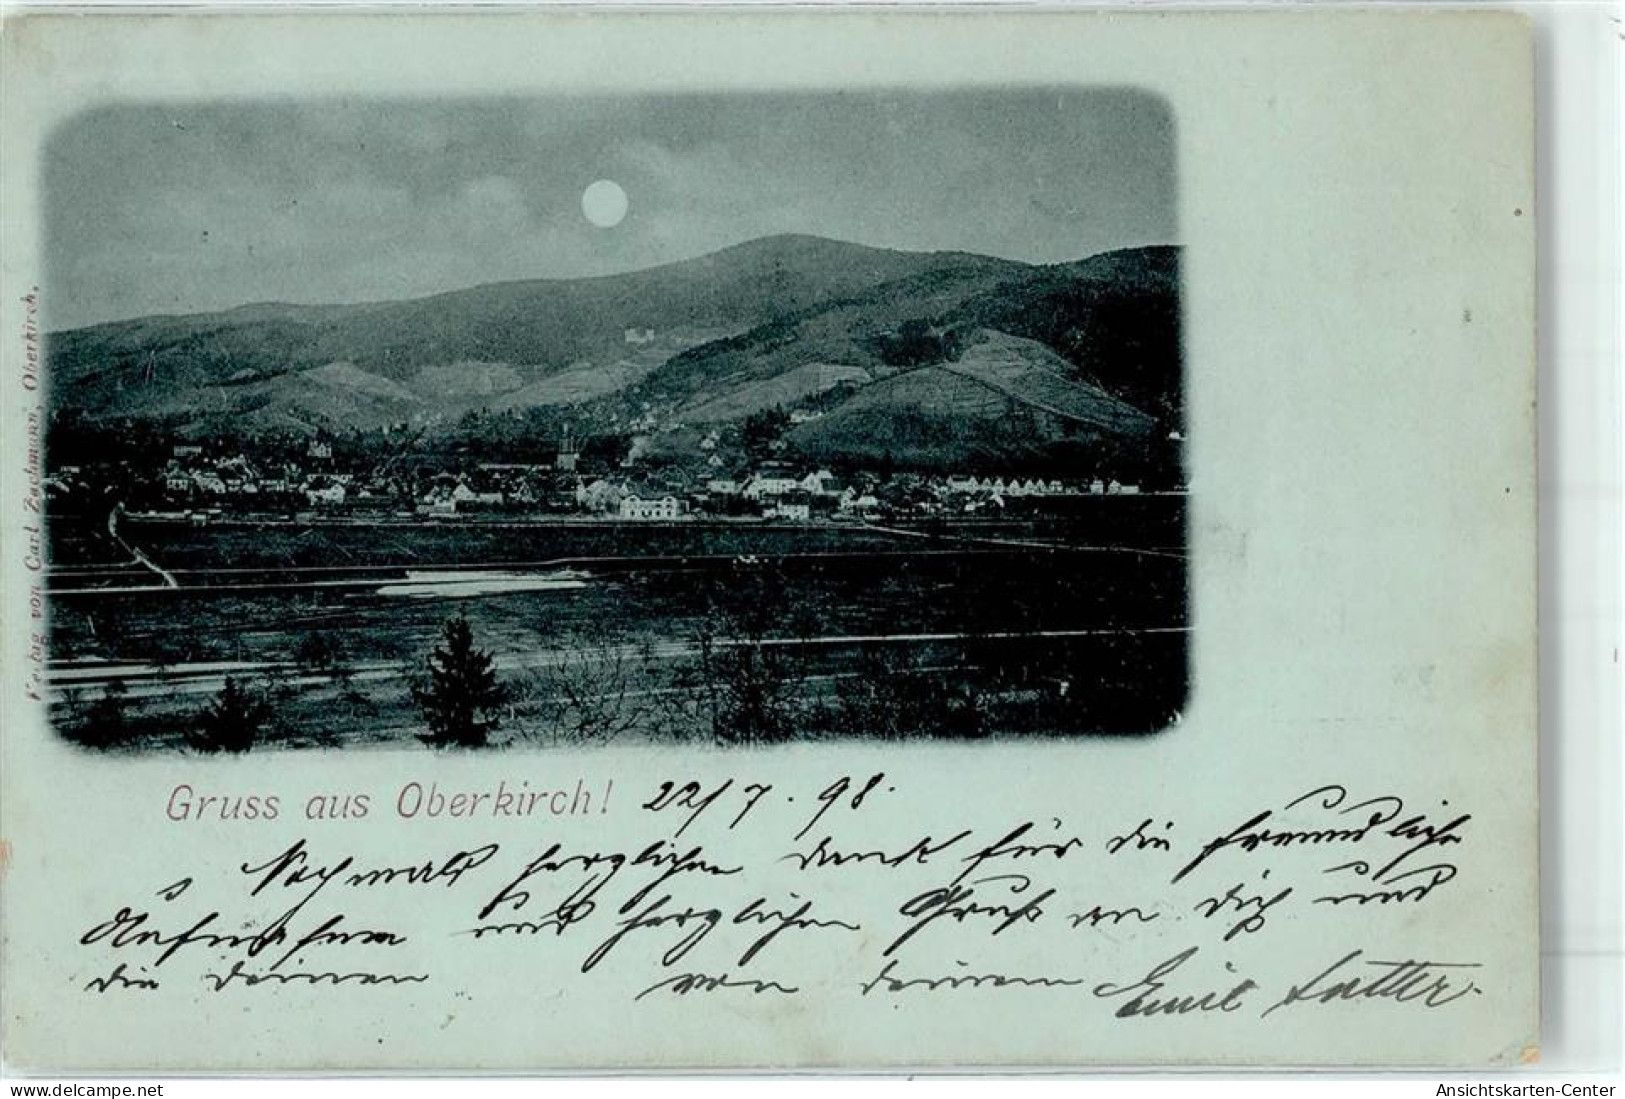 Verlag von Carl Zachmann, Oberkirch.
Gruss aus Oberkirch! 22/7. 98.
Nochmals herzlichen dank für die freundliche
Aufnahme und herzlichen Gruß an dich und
die deinen von deinem Emil
www.delcampe.net
Ansichtskarten-Center